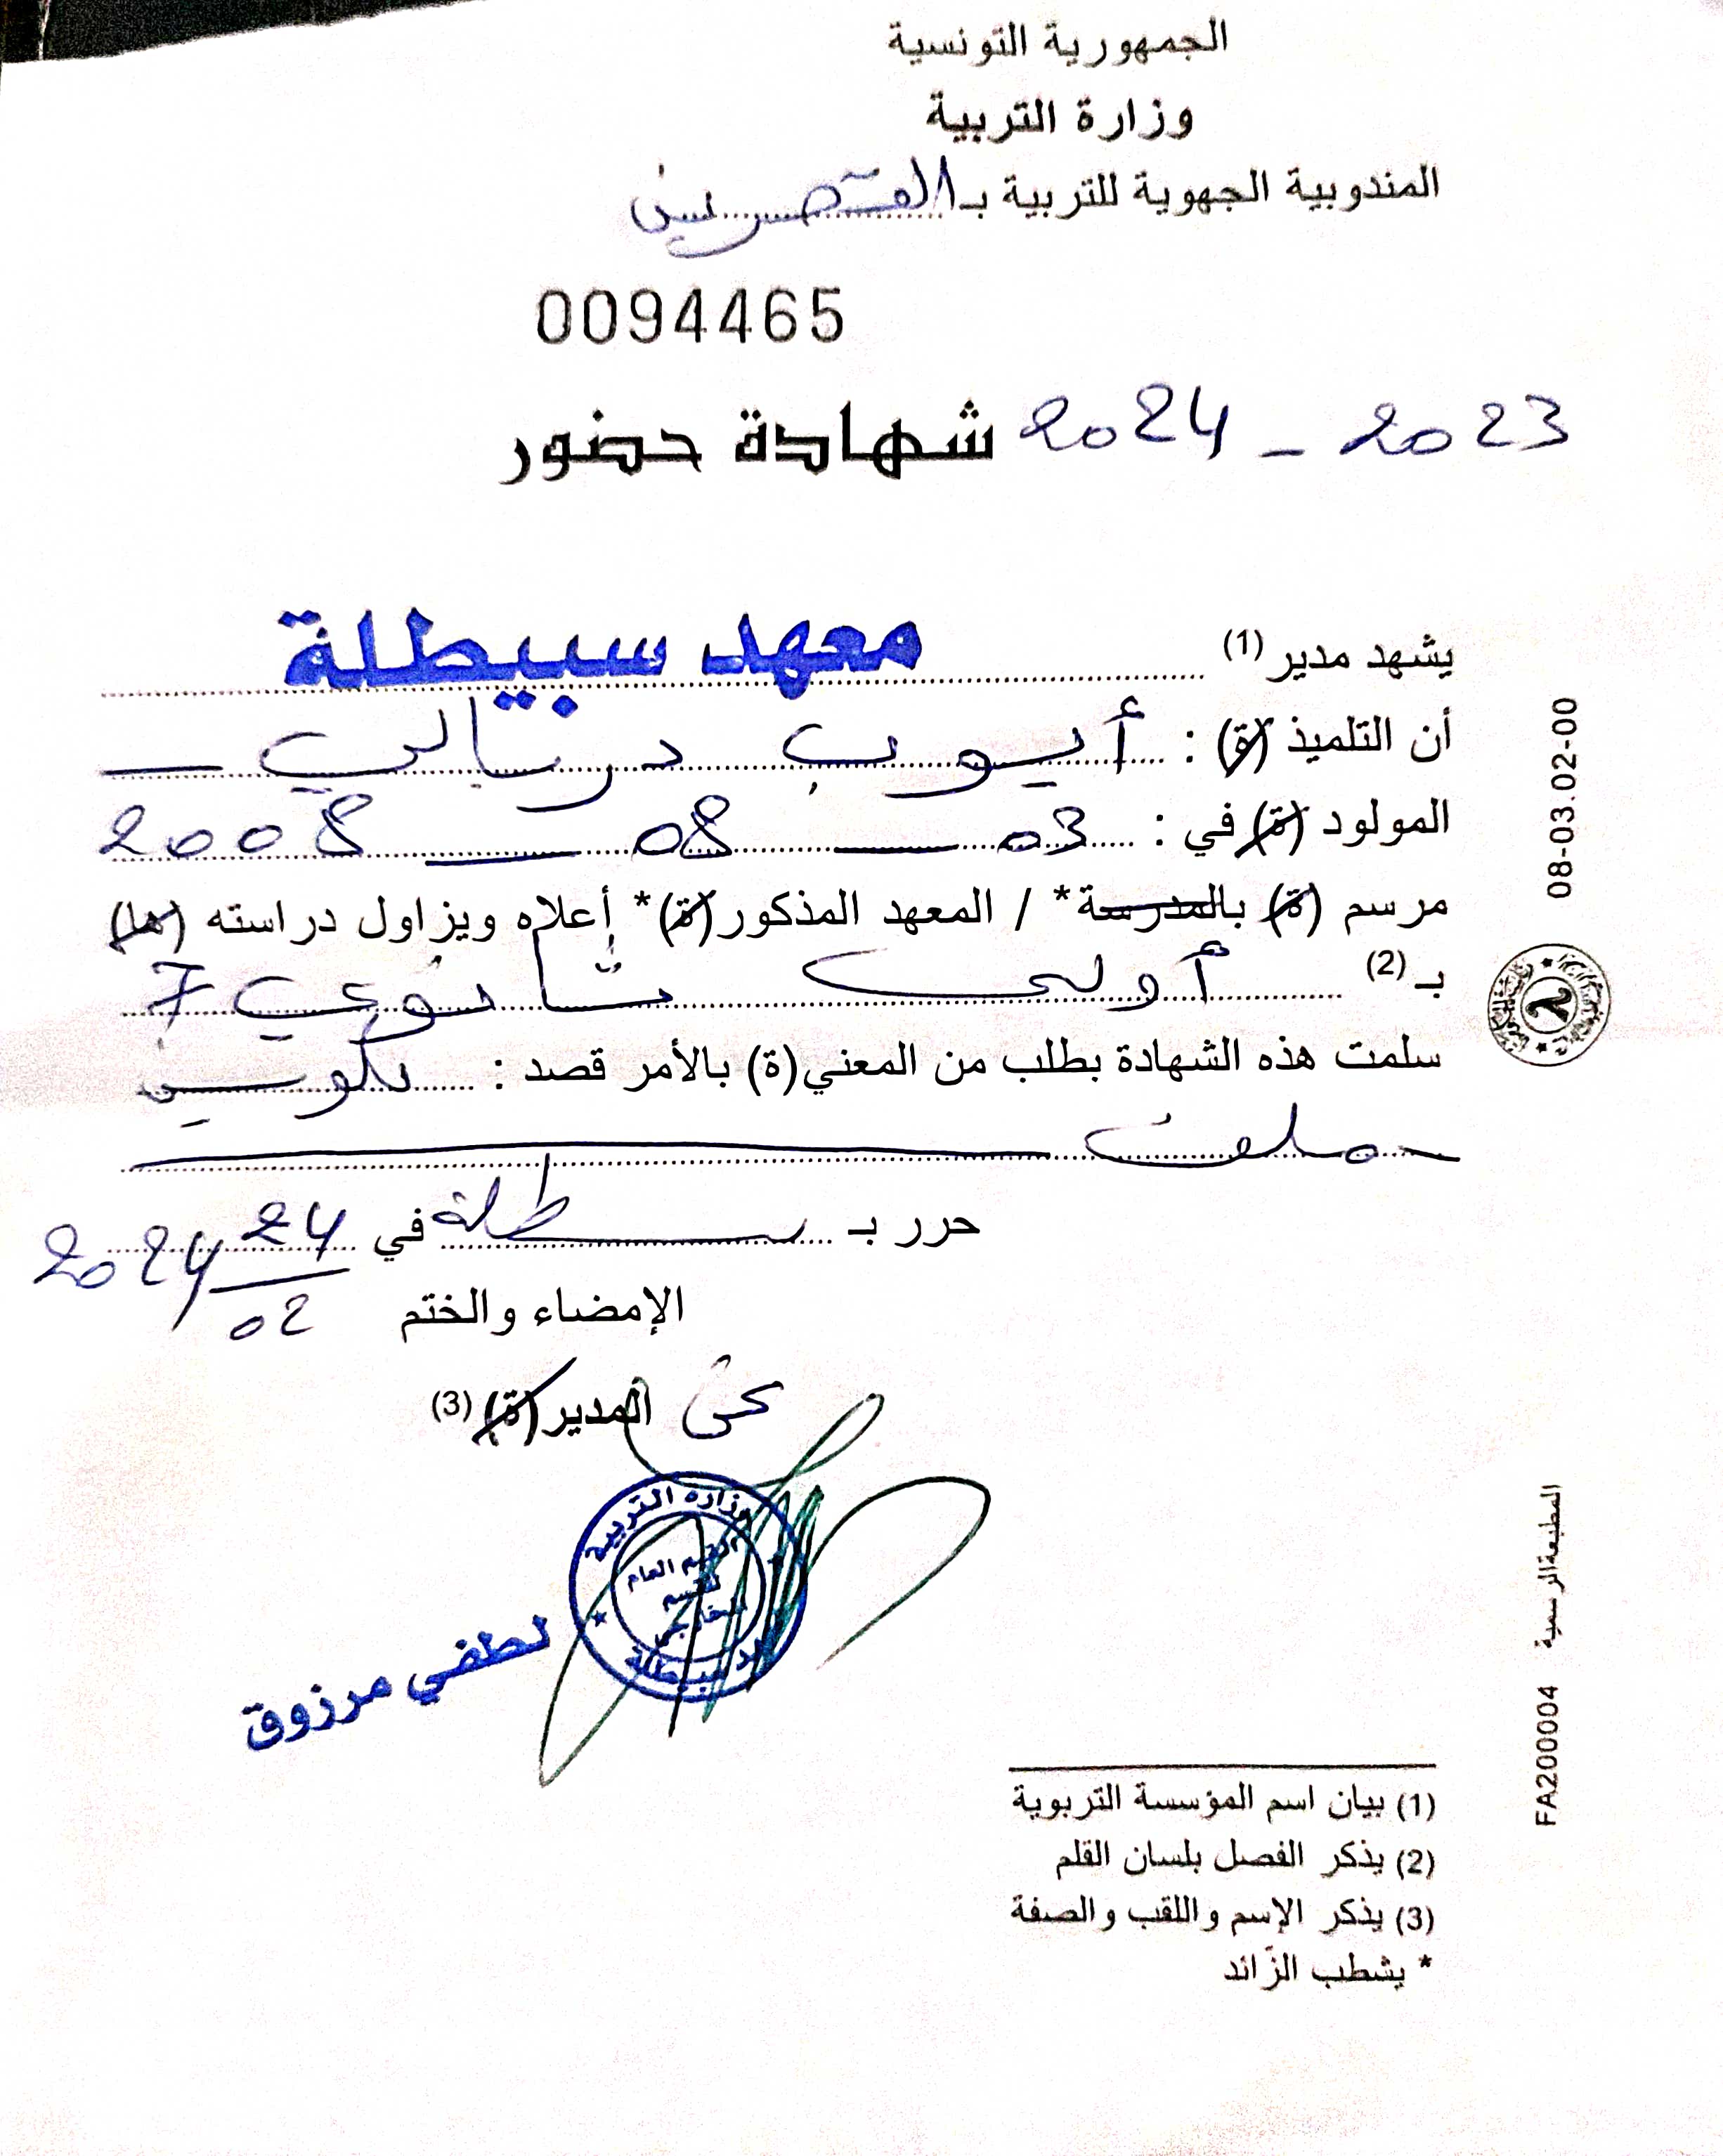 الجمهورية التونسية
وزارة التربية
المندوبية الجهوية للتربية بـ القصرين
0094465
شهادة حضور 2024 - 2023
يشهد مدير (1) معهد سبيطلة
أن التلميذ (ة) : أيوب دربالي
المولود (ة) في : 03 - 08 - 2008
مرسم (ة) بالمدرسة* / المعهد المذكور(ة)* أعلاه ويزاول دراسته (ها)
بـ (2) أولى ثانوي 7
سلمت هذه الشهادة بطلب من المعني(ة) بالأمر قصد : تكوين
ملف
حرر بـ سبيطلة في 24/02 2024
الإمضاء والختم
عن المدير(ة) (3)
وزارة التربية
القيم العام
سبيطلة
لطفي مرزوق
(1) بيان اسم المؤسسة التربوية
(2) يذكر الفصل بلسان القلم
(3) يذكر الإسم واللقب والصفة
* يشطب الزّائد
08-03.02-00
FA200004 المطبعة الرسمية